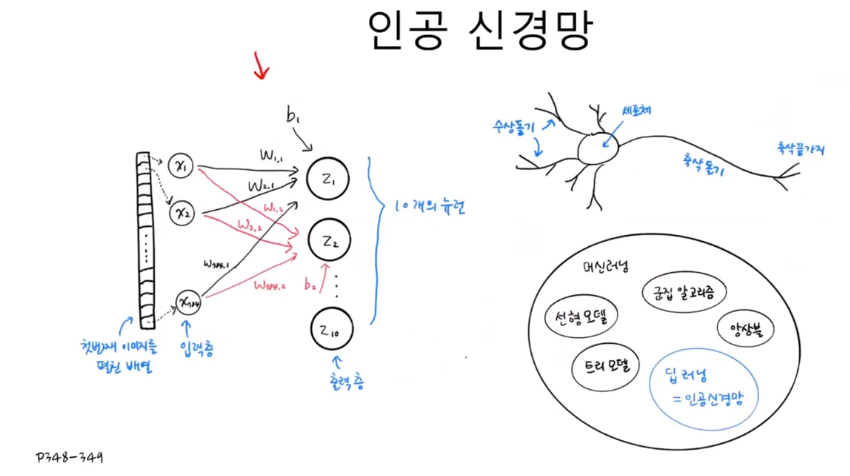 인공 신경망
b₁
x₁
x₂
x₇₈₄
w₁,₁
w₂,₁
w₁,₂
w₂,₂
w₇₈₄,₁
w₇₈₄,₂
b₂
z₁
z₂
z₁₀
10개의 뉴런
첫번째 이미지를
펼친 배열
입력층
출력층
수상돌기
세포체
축삭돌기
축삭끝가지
머신러닝
선형 모델
군집 알고리즘
앙상블
트리 모델
딥러닝
=인공신경망
P348-349